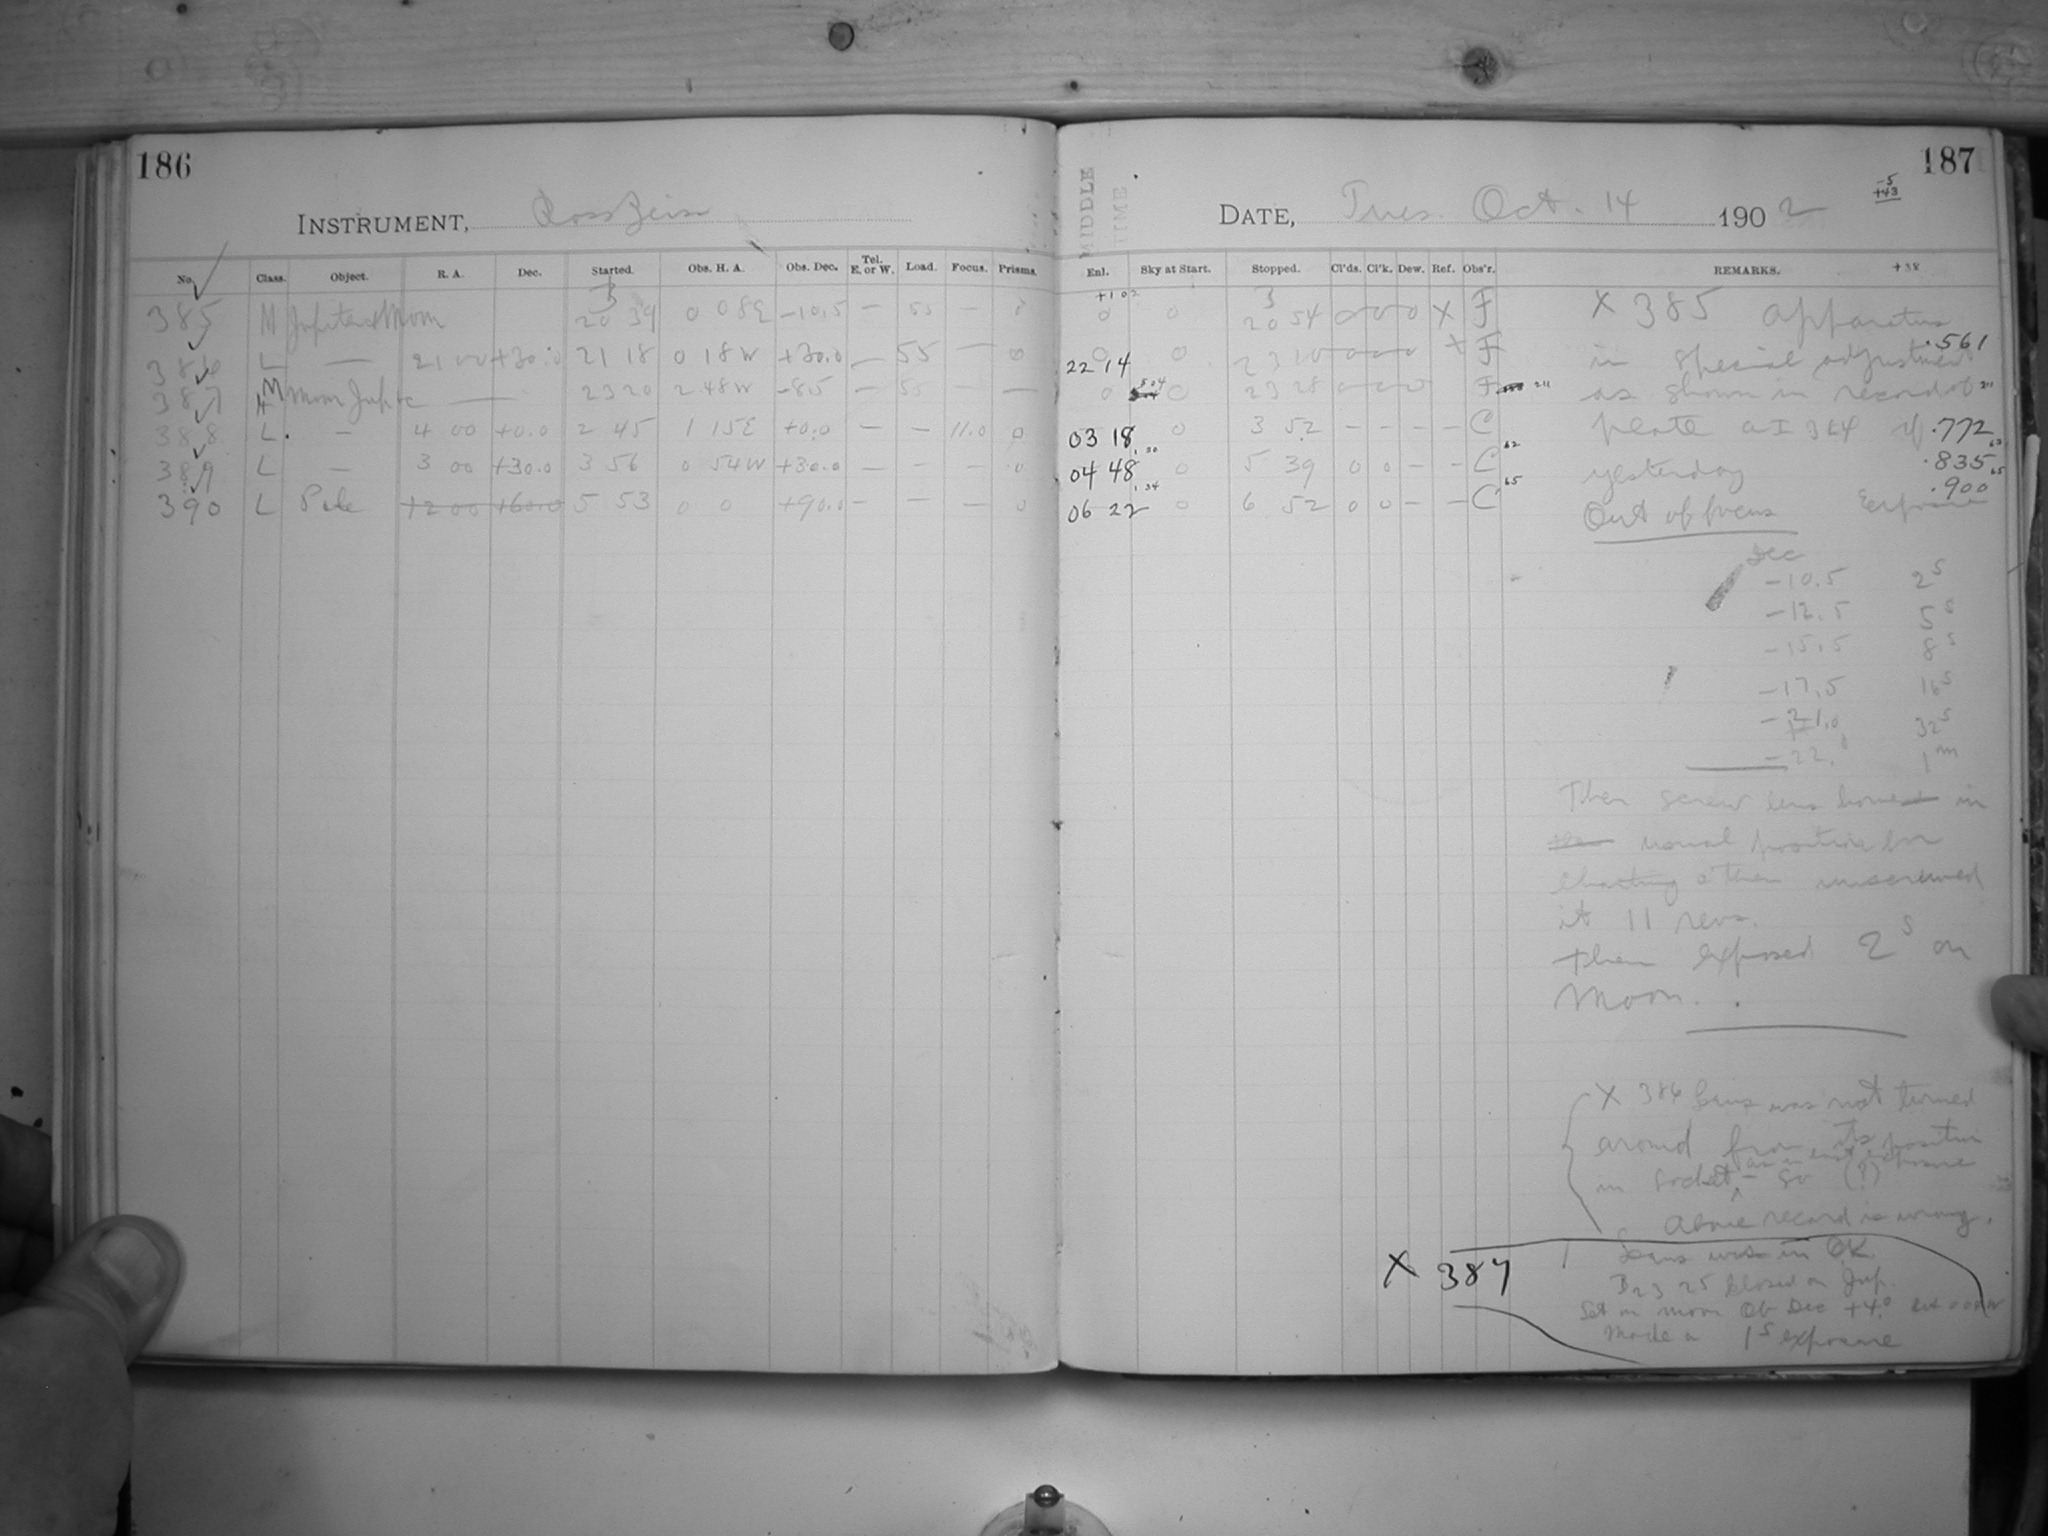 186
187
INSTRUMENT, Ross Zeiss
MIDDLE TIME
DATE, Tues. Oct. 14 1902
-5
+43
No. Class. Object. R. A. Dec. Started. Obs. H. A. Obs. Dec. Tel. E. or W. Load. Focus. Prisms. Enl. Sky at Start. Stopped. Cl'ds. Cl'k. Dew. Ref. Obs'r. REMARKS. +38
385 M Jupiter & Moon 20 39 0 08E -10.5 — 55 — 0 0 0 20 54 0 0 0 X F
386 L — 21 00 +30.0 21 18 0 18W +30.0 — 55 — 0 22 14 0 23 10 X F .561
387 M Moon Jup — 23 20 2 48W -8.5 — 55 — — 0 0 23 28 F 211
388 L. — 4 00 +0.0 2 45 1 15E +0.0 — — 11.0 0 03 18 0 3 52 - - - - C .772
389 L — 3 00 +30.0 3 56 0 54W +30.0 — — — 0 04 48 0 5 39 0 0 - - C .835
390 L Pole 12 00 +60.0 5 53 0 0 +90.0 — — — 0 06 22 0 6 52 0 0 - - C .900
X 385 apparatus
in special adjustment
as shown in record of
plate
yesterday
Out of focus Exposure
Dec
-10.5 2s
-12.5 5s
-15.5 8s
-17.5 16s
-21.0 32s
-22.0 1m
Then screw lens home in
usual position for
charting & then unscrewed
it 11 revs.
then exposed 2s on
Moon.
X 386 Lens was not turned
around from its position
in socket – So (?)
Above record is wrong.
X 387
Lens was in OK
23 25 closed on Jup.
Set on moon Ob Dec +4.0
Made a 1s exposure